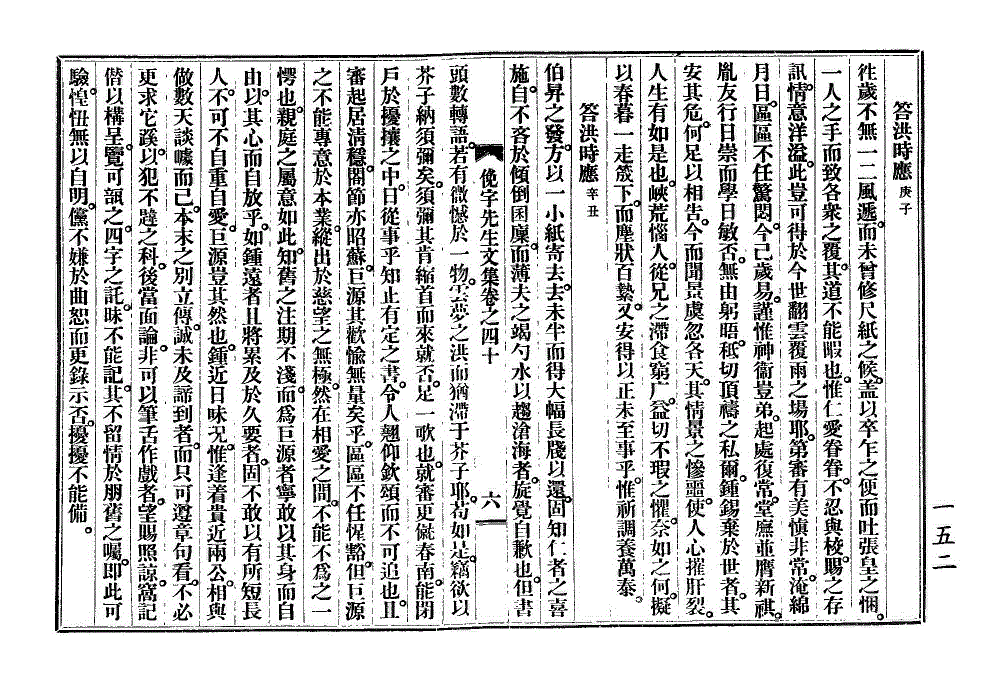 答洪時應 庚子
徃歲不無一二風遞。而未曾修尺紙之候。盖以卒乍之便而吐張皇之悃。
一人之手而致各衆之覆。其道不能暇也。惟仁愛眷眷。不忍與校。賜之存
訊。情意洋溢。此豈可得於今世翻雲覆雨之場耶。第審有美愼非常。淹綿
月日。區區不任驚悶。今已歲易。謹惟神衞豈弟。起處復常。堂廡並膺新祺。
胤友行日崇而學日敏否。無由躬晤。秪切頂禱之私爾。鍾錫棄於世者。其
安其危。何足以相告。今而聞景虞忽各天。其情景之慘噩。使人心摧肝裂。
人生有如是也。峽荒惱人。從兄之滯食窮广。益切不瑕之懼。奈如之何。擬
以春暮一走箴下。而塵狀百縶。又安得以正未至事乎。惟祈調養萬泰。
答洪時應 辛丑
伯昇之發。方以一小紙寄去。去未半而得大幅長牋以還。固知仁者之喜
施。自不吝於傾倒囷廩。而薄夫之竭勺水以趨滄海者。旋覺自歉也。但書
俛宇先生文集卷之四十
六
頭數轉語。若有微憾於一物。雲夢之洪而猶滯于芥子耶。苟如是。竊欲以
芥子納須彌矣。須彌其肯縮首而來就否。足一歌也。就審更僦春南。能閉
戶於擾攘之中。日從事乎知止有定之書。令人翹仰欽頌而不可追也。且
審起居淸穩。閤節亦昭蘇。巨源其歡愉無量矣乎。區區不任惺豁。但巨源
之不能專意於本業。縱出於慈望之無極。然在相愛之間。不能不爲之一
愕也。親庭之屬意如此。知舊之注期不淺。而爲巨源者寧敢以其身而自
由。以其心而自放乎。如鍾遠者且將累及於久要者。固不敢以有所短長
人。不可不自重自愛。巨源豈其然也。鍾近日味况。惟逢着貴近兩公。相與
做數天談噱而已。本末之別立傳。誠未及諦到者。而只可遵章句看。不必
更求它蹊。以犯不韙之科。後當面論。非可以筆舌作戲者。望賜照諒。窩記
偕以構呈。覽可瓿之。四字之託。昧不能記。其不留情於朋舊之囑。卽此可
驗。惶忸無以自明。儻不嫌於曲恕而更錄示否。擾擾不能備。
一五二